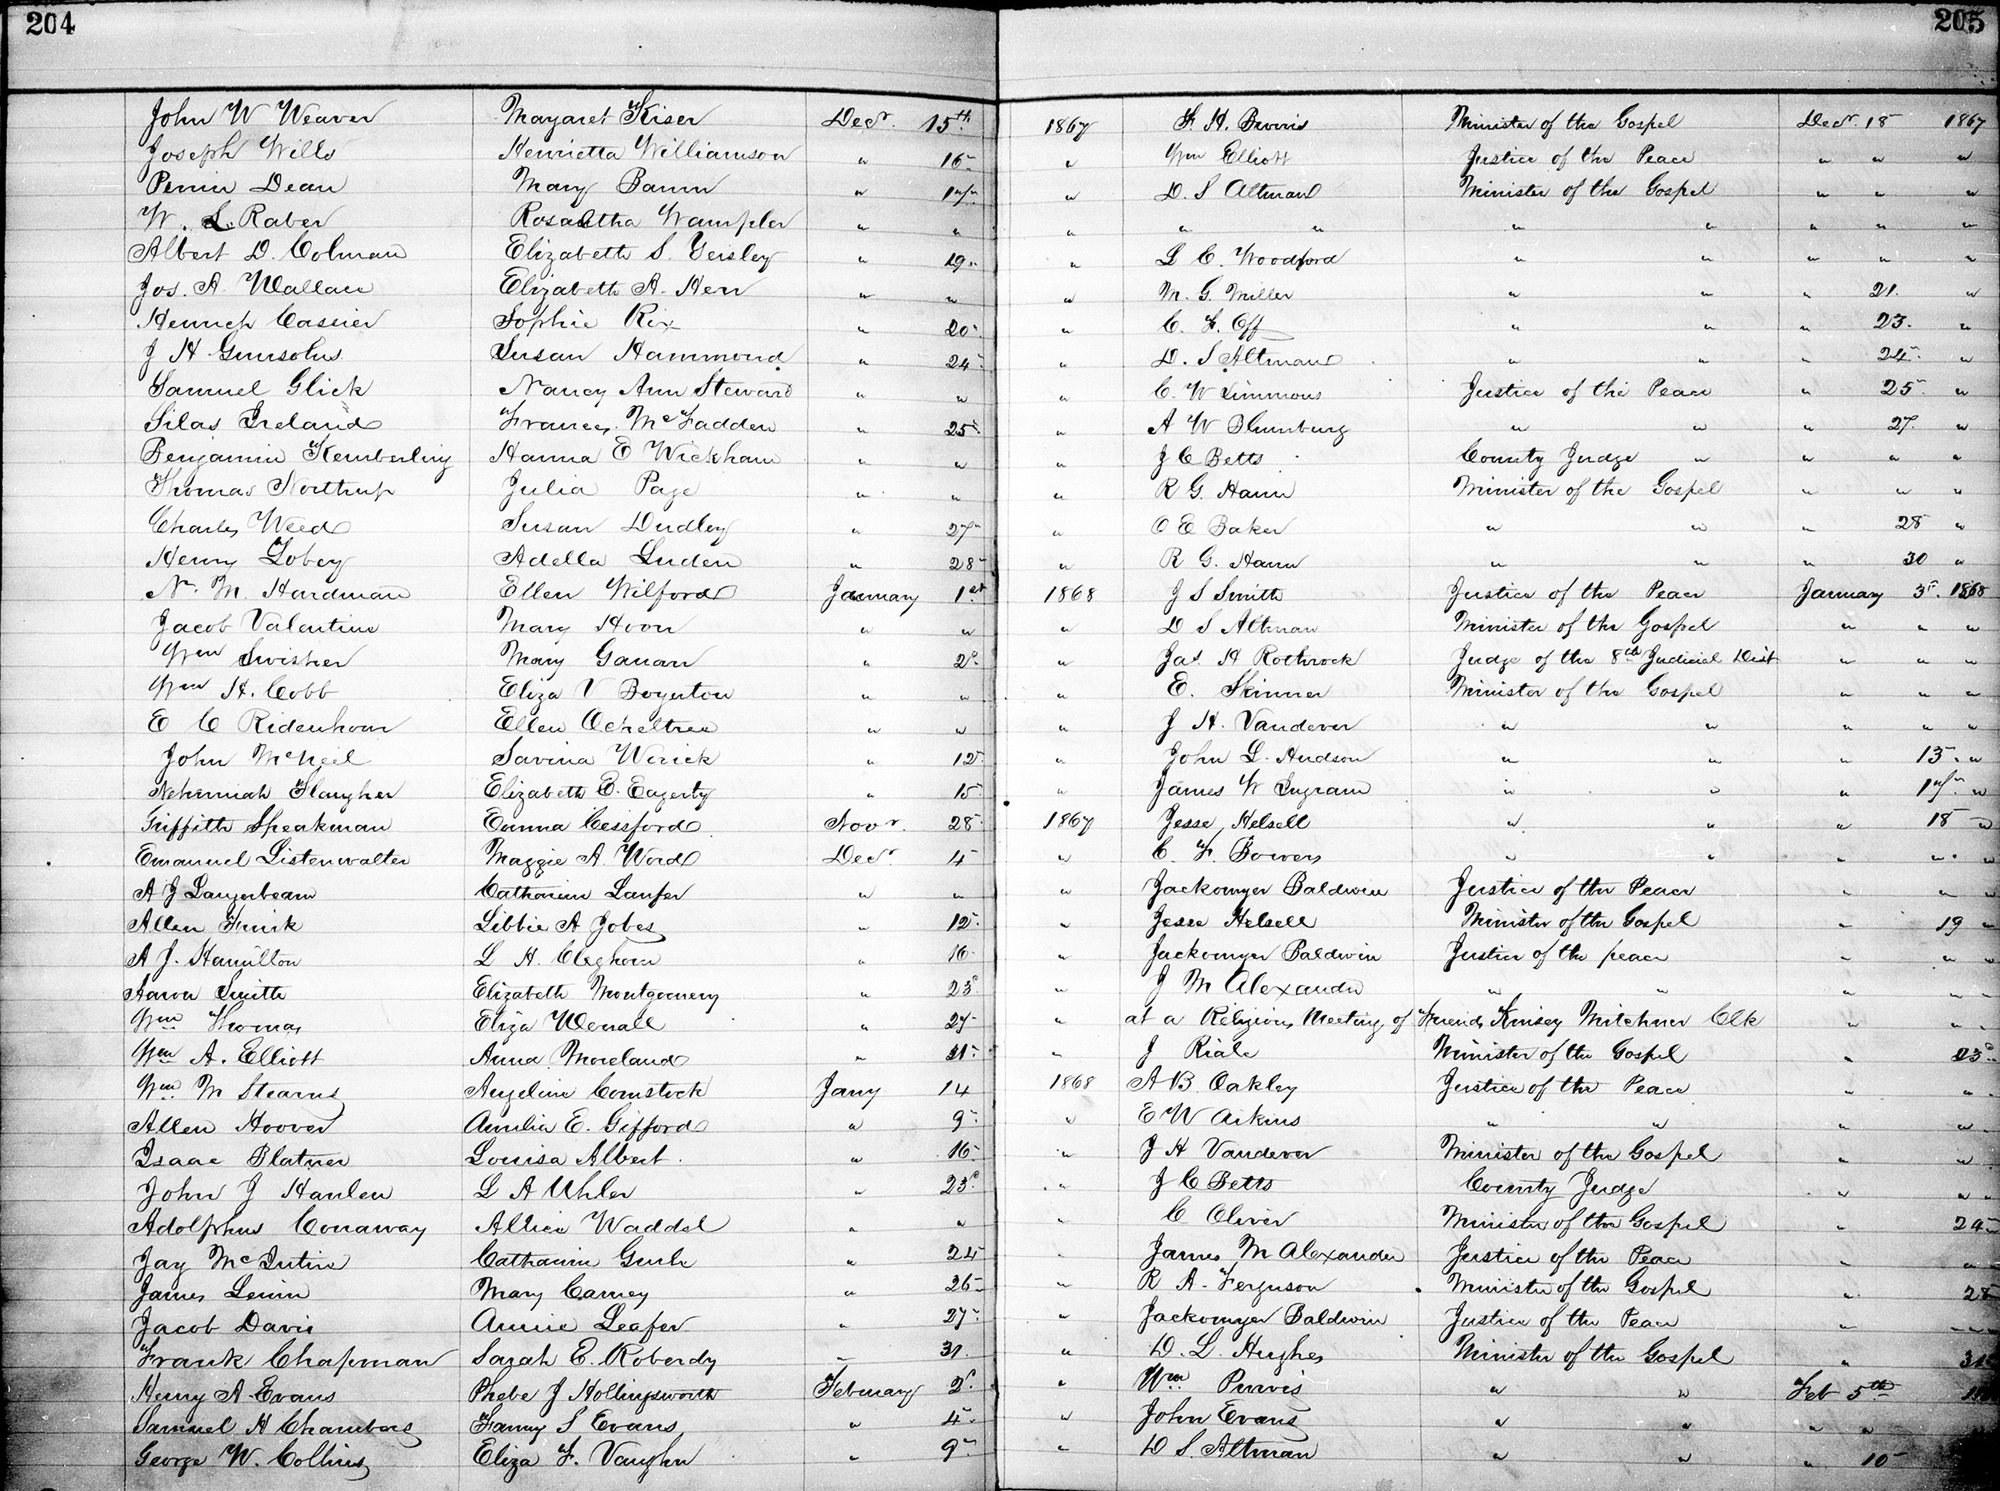 204
205
John W Weaver Margaret Kiser Decr. 15th 1867 F. H. Minister of the Gospel Decr. 18 1867
Joseph Wills Henrietta Williamson " 16 " Wm Elliott Justice of the Peace " " "
Dean Mary " 17 " D. S Altman Minister of the Gospel " " "
W. L. Raber Wampler " " " " " " " " " "
Albert D. Colman Elizabeth S. " 19 " L C. Woodford " " " " "
Jos. A. Wallace Elizabeth A. Herr " " " M. G. Miller " " " 21. "
Henrich Cassier Sophie Rix " 20 " C. F. Off " " " 23. "
J H Gunsolus Susan Hammond " 24 " D. S Altman " " " 24 "
Samuel Glick Nancy Ann Steward " " " C. W Simmons Justice of the Peace " 25 "
Silas Ireland Frances McFadden " 25 " A W " " " 27. "
Benjamin Kemberling Hanna E Wickham " " " J C Betts County Judge " " " "
Thomas Northrup Julia Page " " " R G. Hann Minister of the Gospel " " "
Charles Weed Susan Dudley " 27 " O E Baker " " " 28 "
Henry Adella Luden " 28 " R G. Hann " " " 30 "
N. M. Hardman Ellen Wilford January 1st 1868 J S Smith Justice of the Peace January 3d. 1868
Jacob Valentine Mary Hoon " " " D S Altman Minister of the Gospel " " "
Wm Swisher Mary " 2d " Jas H Rothrock Judge of the 8th Judicial Dist " " "
Wm H. Cobb Eliza V Boyerton " " " E. Skinner Minister of the Gospel " " "
E C Ridenhour Ellen Ocheltree " " " J H. Vandever " " " " "
John McNeil Savina " 12 " John L. Hudson " " " 13 "
Nehemiah Elizabeth E. " 15 " James W Ingram " " " 17 "
Griffith Speakman Emma Cessford Novr. 28 1867 Jesse Helsell " " " 18 "
Emanuel Listenwalter Maggie A. Word Decr. 4 " C. F. Bowers " " " " "
A J Langerbeam Catharine Laufer " " " Jackomyer Baldwin Justice of the Peace " " "
Allen Funk Libbie A Jobes " 12 " Jesse Helsell Minister of the Gospel " 19 "
A J. Hamilton L H. Cleghorn " 16 " Jackomyer Baldwin Justice of the peace " " "
Aaron Smith Elizabeth Montgomery " 23d " J M Alexander " " " " "
Wm Thomas Eliza " 27 " at a Religious Meeting of Friends Kinsey Mitchner Clk " " "
Wm A. Elliott Anna Moreland " 31 " J Riale Minister of the Gospel " 23d "
Wm M Stearns Angeline Comstock Jany 14 1868 A B. Oakley Justice of the Peace " " "
Allen Hoover Amelia E. Gifford " 9 " E W Aikins " " " " "
Isaac Blatner Louisa Albert " 16 " J H Vandever Minister of the Gospel " " "
John J Hanlen L A Uhler " 23d " J C Betts County Judge " " "
Adolphus Conaway Allice Waddel " " " C Oliver Minister of the Gospel " 24
Jay McIntire Catharine " 24 " James M Alexander Justice of the Peace " "
James Mary Carney " 26 " R A. Ferguson Minister of the Gospel " 28
Jacob Davis Annie Leafer " 27 " Jackomyer Baldwin Justice of the Peace " "
Frank Chapman Sarah E. Roberdy " 31. " D. L. Hughes Minister of the Gospel " 31
Henry A Evans Phebe J Hollingsworth February 2d " Wm Purvis " " Feb 5th
Samuel H Chambers Fanny S Evans " 4 " John Evans " " " "
George W. Collins Eliza F. Vaughn " 9 " D S. Altman " " " 10